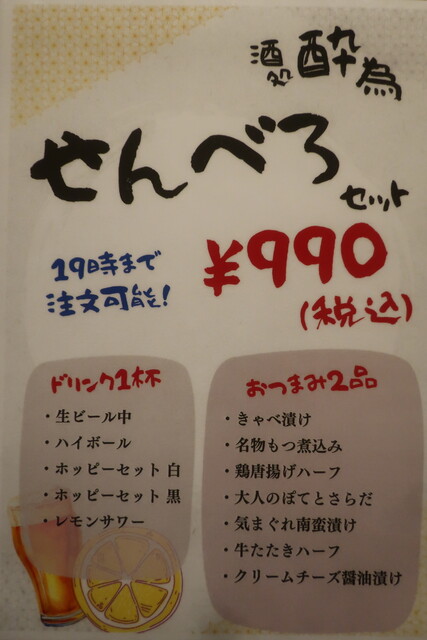 酒処 酔為
せんべろ
セット
19時まで
注文可能!
¥990
(税込)
ドリンク1杯
・生ビール中
・ハイボール
・ホッピーセット 白
・ホッピーセット 黒
・レモンサワー
おつまみ2品
・きゃべ漬け
・名物もつ煮込み
・鶏唐揚げハーフ
・大人のぽてとさらだ
・気まぐれ南蛮漬け
・牛たたきハーフ
・クリームチーズ醤油漬け